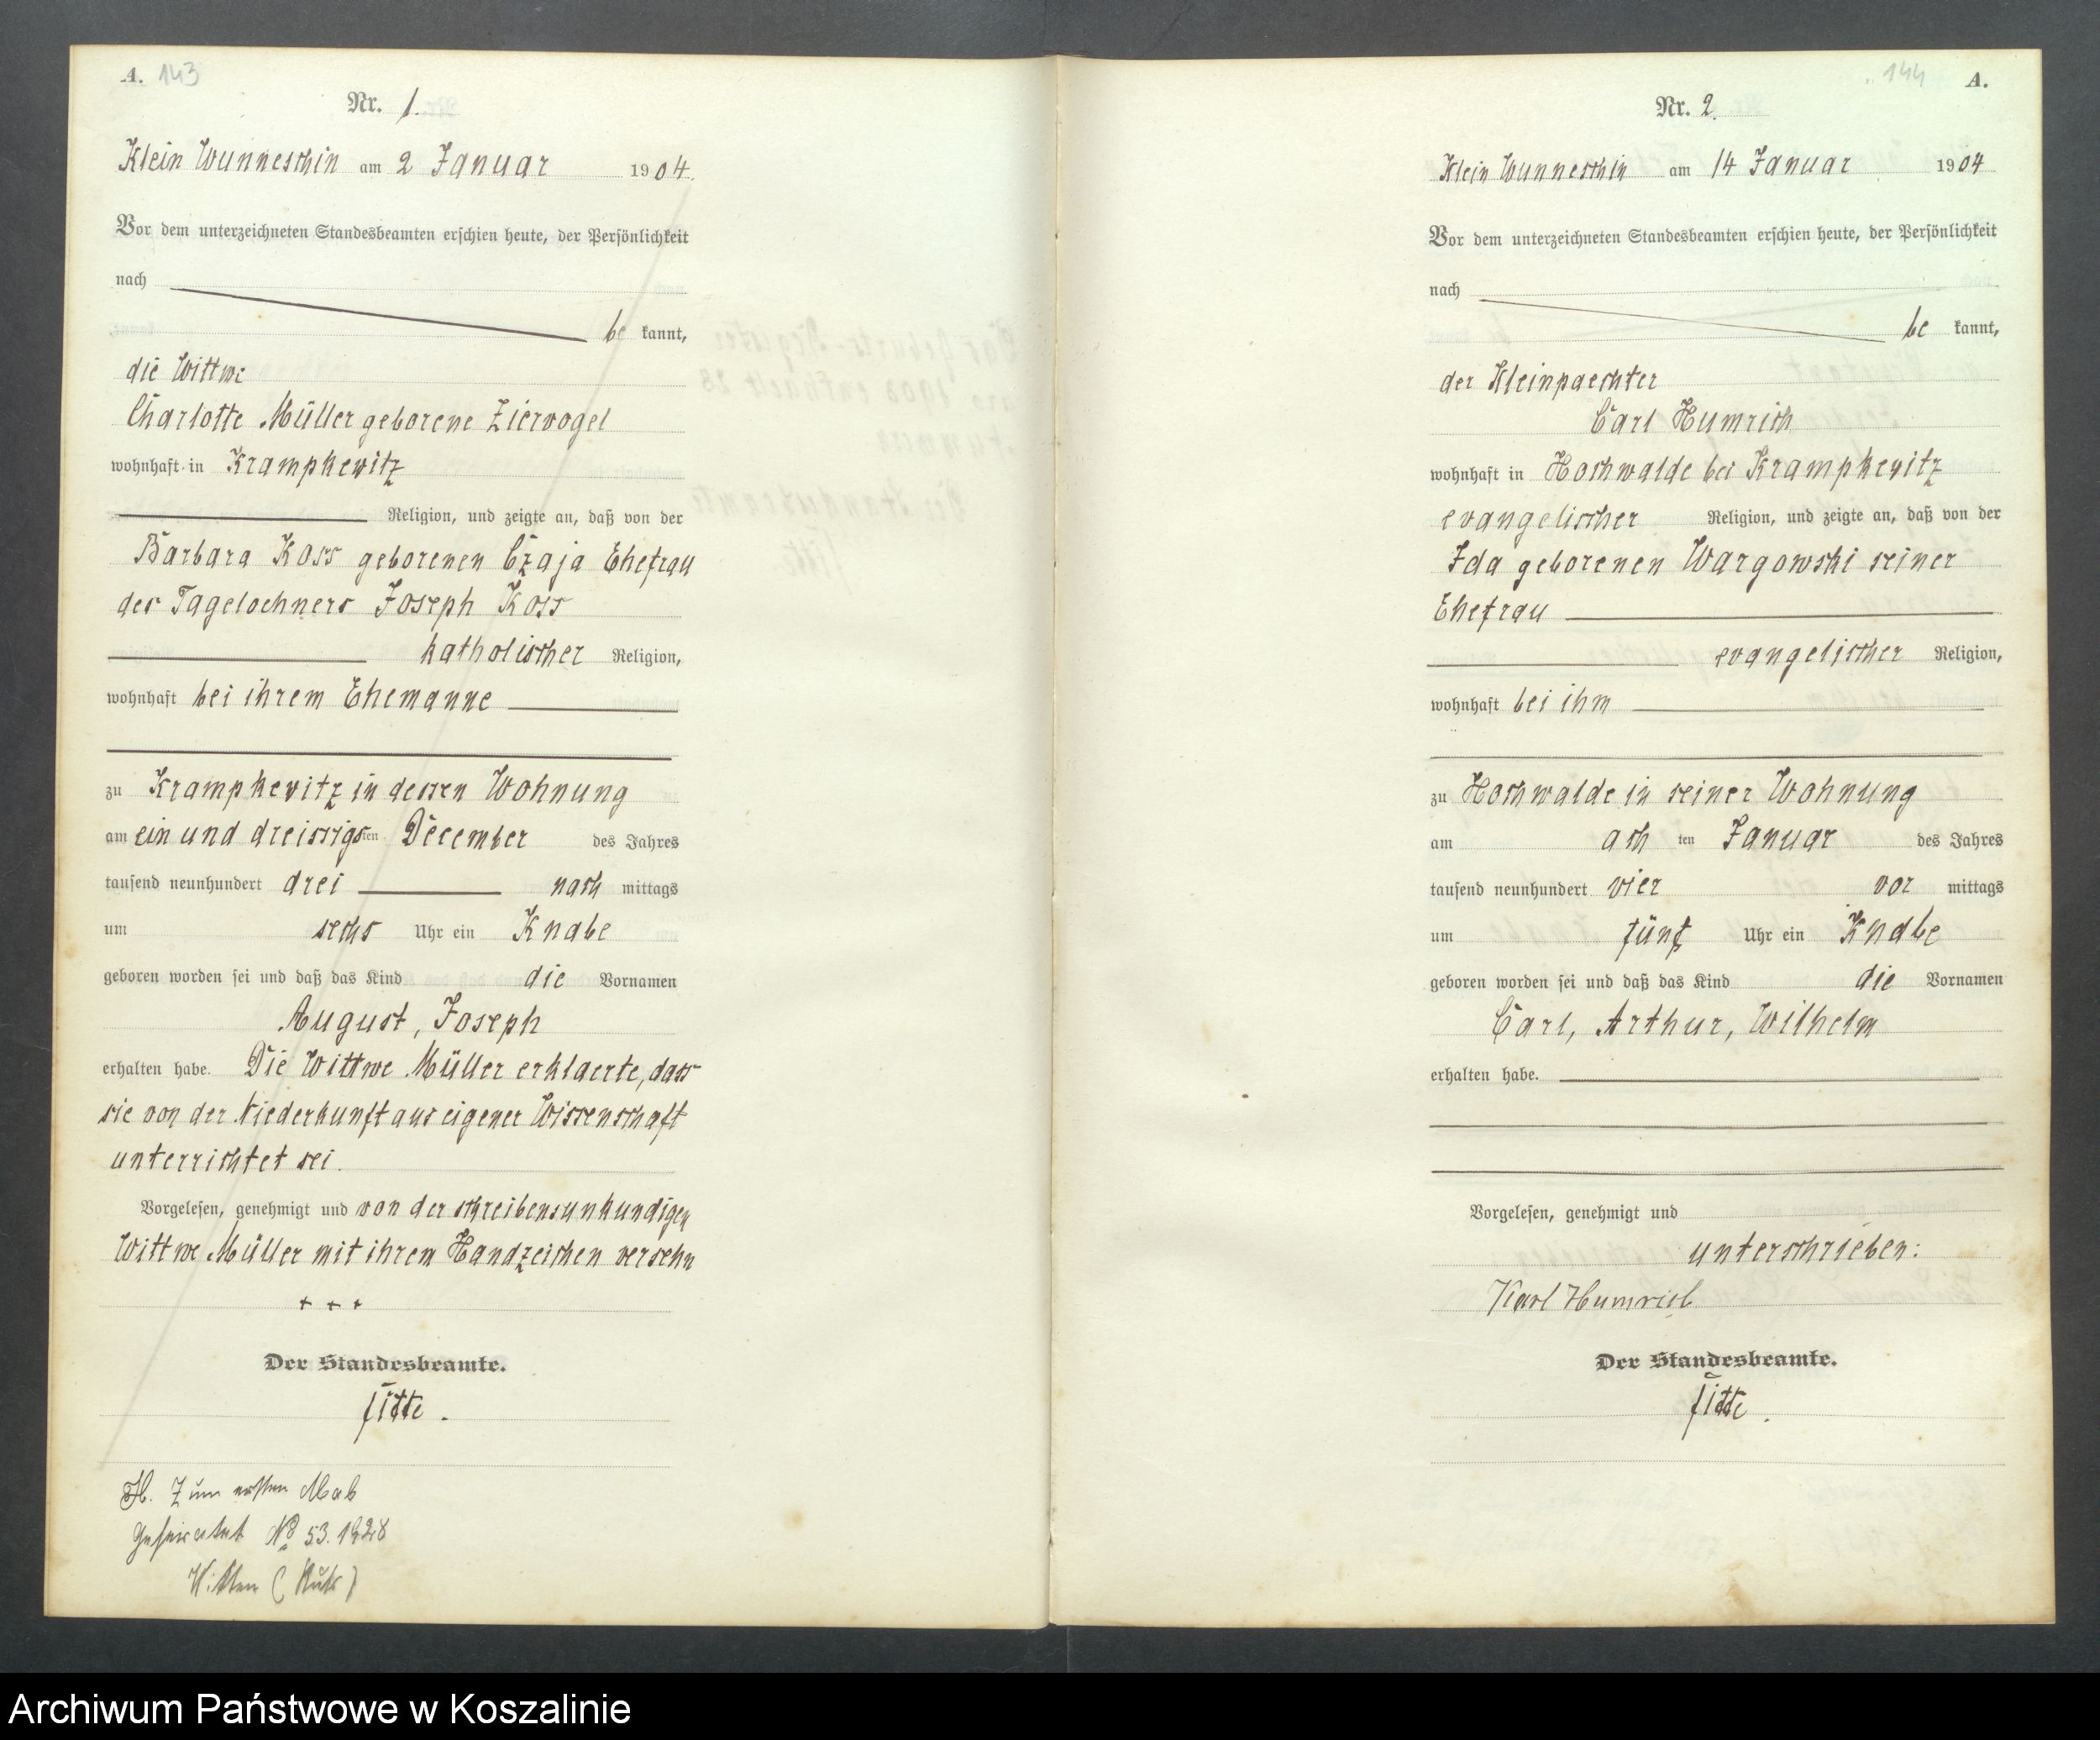 A. 143
Nr. 1.
Klein Wunneschin am 2 Januar 1904.
Vor dem unterzeichneten Standesbeamten erschien heute, der Persönlichkeit
nach
be kannt,
die Wittwe
Charlotte Müller geborene Ziervogel
wohnhaft in Krampkewitz
Religion, und zeigte an, daß von der
Barbara Koss geborenen Czaja Ehefrau
des Tageloehners Joseph Koss
katholischer Religion,
wohnhaft bei ihrem Ehemanne
zu Krampkewitz in dessen Wohnung
am ein und dreissigsten December des Jahres
tausend neunhundert drei nach mittags
um sechs Uhr ein Knabe
geboren worden sei und daß das Kind die Vornamen
August, Joseph
erhalten habe. Die Wittwe Müller erklaerte, dass
sie von der Niederkunft aus eigener Wissenschaft
unterrichtet sei.
Vorgelesen, genehmigt und von der schreibensunkundigen
Wittwe Müller mit ihrem Handzeichen versehn
+ + +
Der Standesbeamte.
H. Zum ersten Mal
geheiratet No 53. 1928
Witten (Ruhr)
144 A.
Nr. 2.
Klein Wunneschin am 14 Januar 1904
Vor dem unterzeichneten Standesbeamten erschien heute, der Persönlichkeit
nach
be kannt,
der Kleinpaechter
Carl Humrich
wohnhaft in Hochwalde bei Krampkewitz
evangelischer Religion, und zeigte an, daß von der
Ida geborenen Wargowski seiner
Ehefrau
evangelischer Religion,
wohnhaft bei ihm
zu Hochwalde in seiner Wohnung
am ach ten Januar des Jahres
tausend neunhundert vier vor mittags
um fünf Uhr ein Knabe
geboren worden sei und daß das Kind die Vornamen
Carl, Arthur, Wilhelm
erhalten habe.
Vorgelesen, genehmigt und
unterschrieben:
Karl Humrich
Der Standesbeamte.
Archiwum Państwowe w Koszalinie